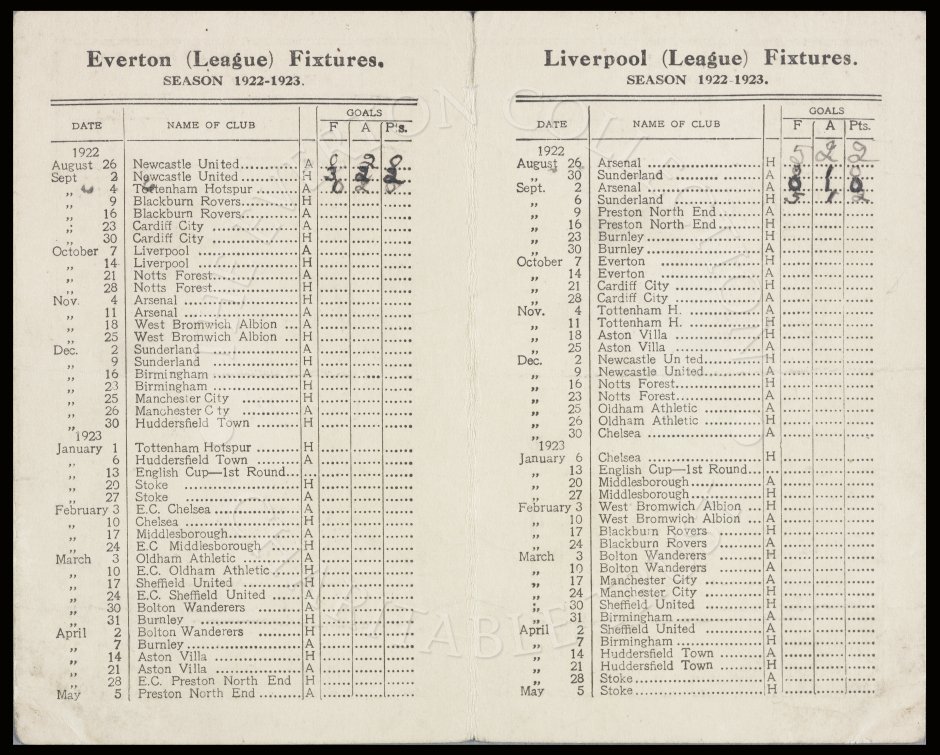 Everton (League) Fixtures.
SEASON 1922-1923.
GOALS
DATE NAME OF CLUB F A Pts.
1922
August 26 Newcastle United A 0 2 0
Sept 2 Newcastle United H 3 2 2
„ 4 Tottenham Hotspur A 0 2 0
„ 9 Blackburn Rovers H
„ 16 Blackburn Rovers A
„ 23 Cardiff City A
„ 30 Cardiff City H
October 7 Liverpool A
„ 14 Liverpool H
„ 21 Notts Forest A
„ 28 Notts Forest H
Nov. 4 Arsenal H
„ 11 Arsenal A
„ 18 West Bromwich Albion A
„ 25 West Bromwich Albion H
Dec. 2 Sunderland A
„ 9 Sunderland H
„ 16 Birmingham A
„ 23 Birmingham H
„ 25 Manchester City H
„ 26 Manchester C ty A
„ 30 Huddersfield Town H
1923
January 1 Tottenham Hotspur H
„ 6 Huddersfield Town A
„ 13 English Cup—1st Round
„ 20 Stoke H
„ 27 Stoke A
February 3 E.C. Chelsea A
„ 10 Chelsea H
„ 17 Middlesborough A
„ 24 E.C Middlesborough H
March 3 Oldham Athletic A
„ 10 E.C. Oldham Athletic H
„ 17 Sheffield United H
„ 24 E.C. Sheffield United A
„ 30 Bolton Wanderers A
„ 31 Burnley H
April 2 Bolton Wanderers H
„ 7 Burnley A
„ 14 Aston Villa H
„ 21 Aston Villa A
„ 28 E.C. Preston North End H
May 5 Preston North End A
Liverpool (League) Fixtures.
SEASON 1922-1923.
GOALS
DATE NAME OF CLUB F A Pts.
1922
August 26 Arsenal H 5 2 2
„ 30 Sunderland A
Sept. 2 Arsenal A 0 1 0
„ 6 Sunderland H 5 1 2
„ 9 Preston North End A
„ 16 Preston North End H
„ 23 Burnley H
„ 30 Burnley A
October 7 Everton H
„ 14 Everton A
„ 21 Cardiff City H
„ 28 Cardiff City A
Nov. 4 Tottenham H. A
„ 11 Tottenham H. H
„ 18 Aston Villa H
„ 25 Aston Villa A
Dec. 2 Newcastle Un ted H
„ 9 Newcastle United A
„ 16 Notts Forest H
„ 23 Notts Forest A
„ 25 Oldham Athletic A
„ 26 Oldham Athletic H
„ 30 Chelsea A
1923
January 6 Chelsea H
„ 13 English Cup—1st Round
„ 20 Middlesborough A
„ 27 Middlesborough H
February 3 West Bromwich Albion H
„ 10 West Bromwich Albion A
„ 17 Blackburn Rovers H
„ 24 Blackburn Rovers A
March 3 Bolton Wanderers H
„ 10 Bolton Wanderers A
„ 17 Manchester City A
„ 24 Manchester City H
„ 30 Sheffield United H
„ 31 Birmingham A
April 2 Sheffield United A
„ 7 Birmingham H
„ 14 Huddersfield Town A
„ 21 Huddersfield Town H
„ 28 Stoke A
May 5 Stoke H